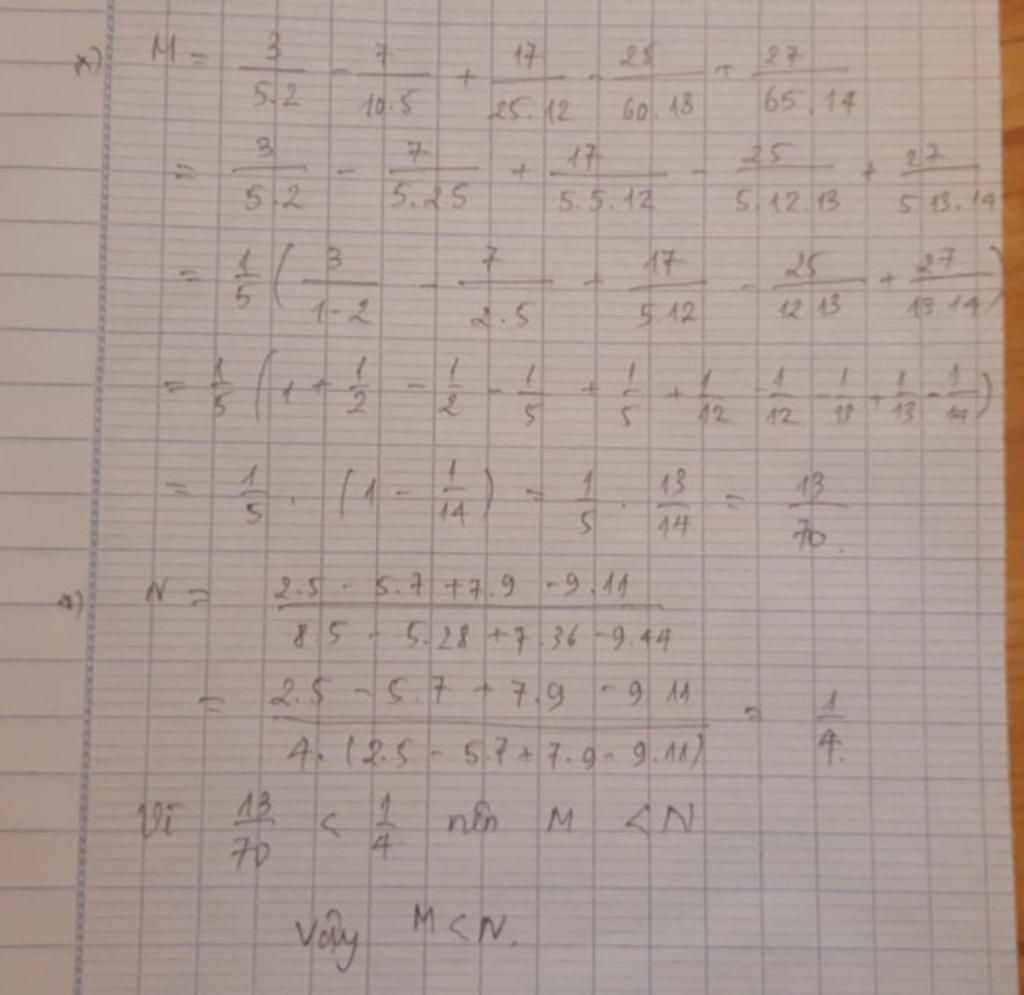 *) M = 3/5.2 - 7/10.5 + 17/25.12 - 25/60.13 + 27/65.14
= 3/5.2 - 7/5.2.5 + 17/5.5.12 - 25/5.12.13 + 27/5.13.14
= 1/5 ( 3/1.2 - 7/2.5 + 17/5.12 - 25/12.13 + 27/13.14 )
= 1/5 ( 1 + 1/2 - 1/2 - 1/5 + 1/5 + 1/12 - 1/12 - 1/13 + 1/13 - 1/14 )
= 1/5 . ( 1 - 1/14 ) = 1/5 . 13/14 = 13/70.
*) N = 2.5 - 5.7 + 7.9 - 9.11 / 8.5 - 5.28 + 7.36 - 9.44
= 2.5 - 5.7 + 7.9 - 9.11 / 4.(2.5 - 5.7 + 7.9 - 9.11) = 1/4.
Vì 13/70 < 1/4 nên M < N
Vậy M < N.